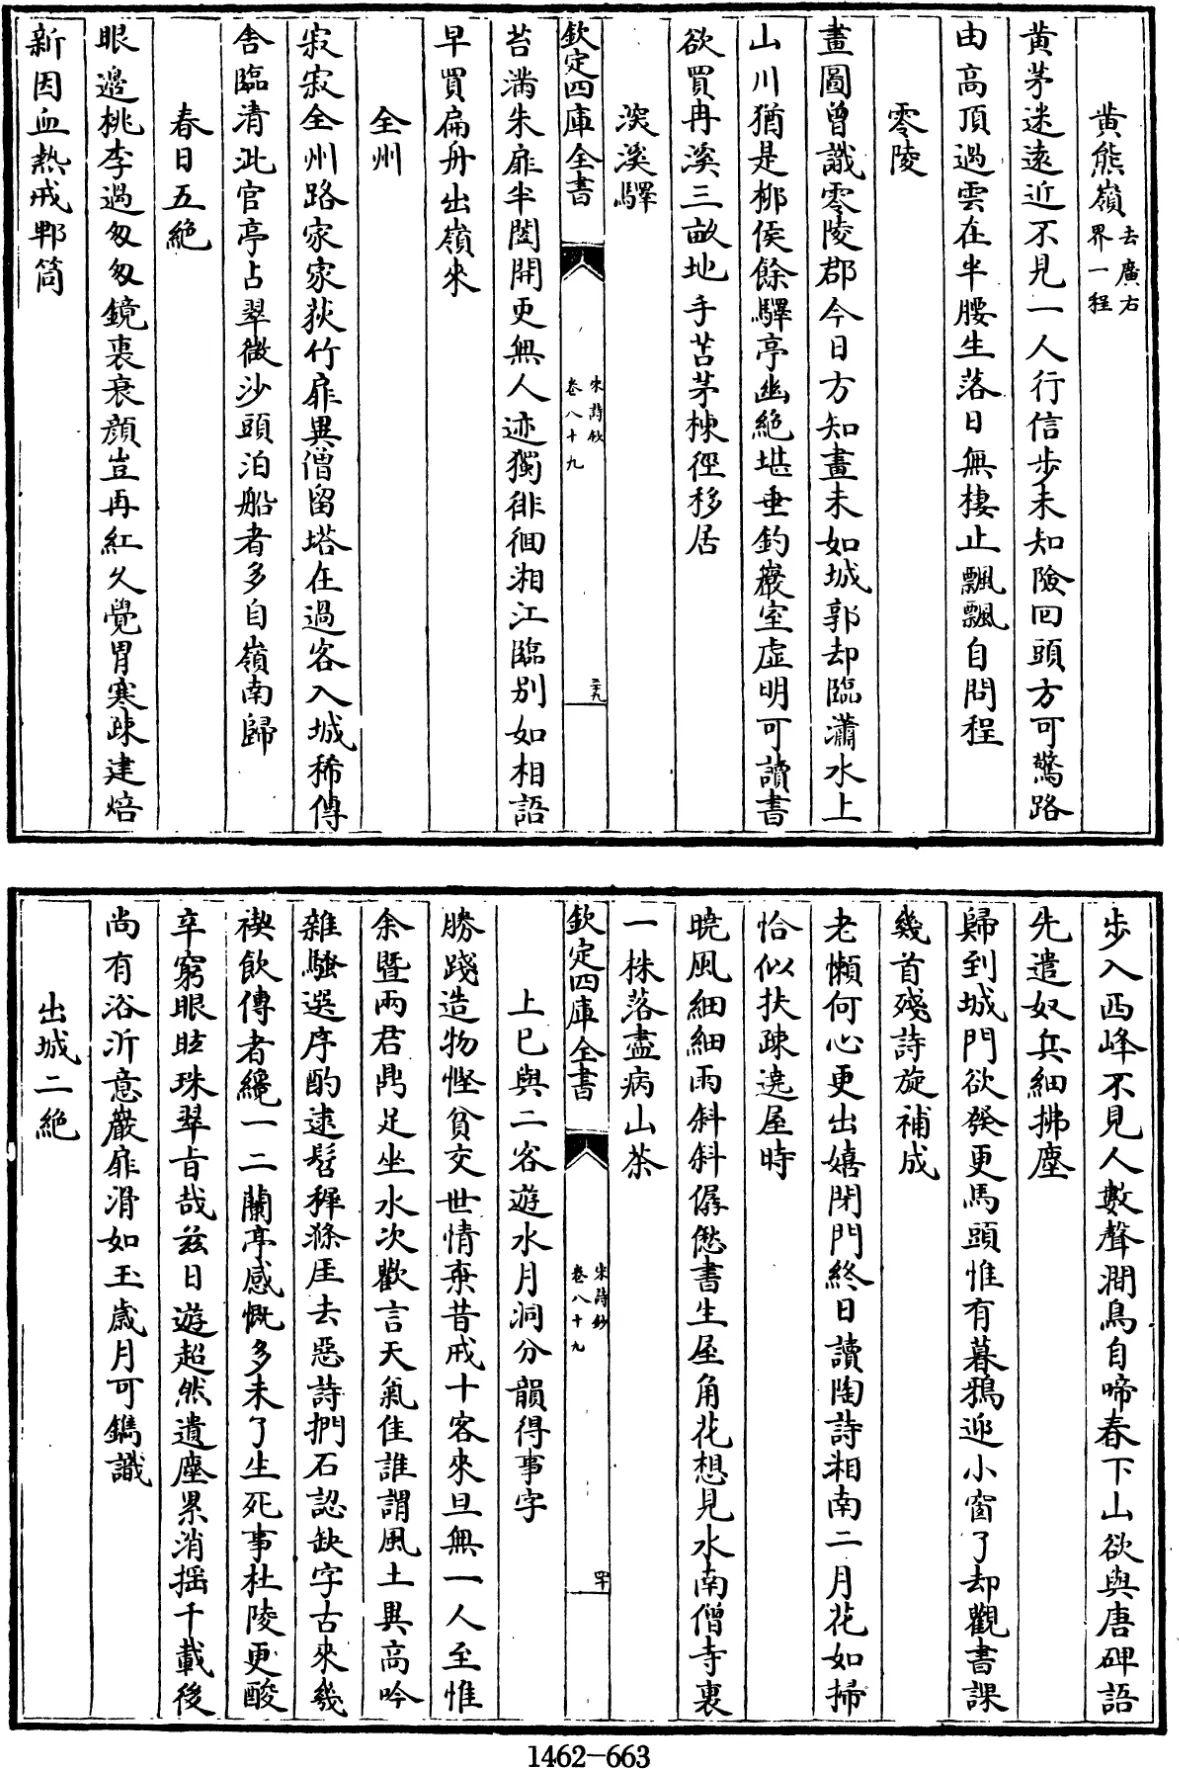 黄熊嶺去廣右界一程
黄茅迷遠近不見一人行信步未知險回頭方可驚路
由高頂過雲在半腰生落日無棲止飄飄自問程
零陵
畫圖曾識零陵郡今日方知畫未如城郭却臨瀟水上
山川猶是栁侯餘驛亭幽絶堪垂釣巖室虛明可讀書
欲買冉溪三畝地手苫茅棟徑移居
淡溪驛
欽定四庫全書
宋詩鈔
卷八十九
三十九
苔滿朱扉半闔開更無人迹獨徘徊湘江臨别如相語
早買扁舟出嶺來
全州
寂寂全州路家家荻竹扉異僧留塔在過客入城稀傳
舍臨清泚官亭占翠微沙頭泊船者多自嶺南歸
春日五絶
眼邊桃李過匆匆鏡裏衰顔豈再紅久覺胃寒疎建焙
新因血熱戒郫筒
步入西峰不見人數聲澗鳥自啼春下山欲與唐碑語
先遣奴兵細拂塵
歸到城門欲發更馬頭惟有暮鴉迎小窗了却觀書課
幾首殘詩旋補成
老懶何心更出嬉閉門終日讀陶詩湘南二月花如掃
恰似扶疎遶屋時
曉風細細雨斜斜僝僽書生屋角花想見水南僧寺裏
一株落盡病山茶
欽定四庫全書
宋詩鈔
卷八十九
四十
上巳與二客遊水月洞分韻得事字
勝踐造物慳貧交世情棄昔戒十客來旦無一人至惟
余暨兩君鼎足坐水次歡言天氣佳誰謂風土異高吟
雜騷選序酌逮髫穉滌厓去惡詩捫石認缺字古來幾
禊飲傳者纔一二蘭亭感慨多未了生死事杜陵更酸
辛窮眼眩珠翠旨哉兹日遊超然遺塵累消摇千載後
尚有浴沂意巖扉滑如玉歲月可鐫識
出城二絶
1462—663